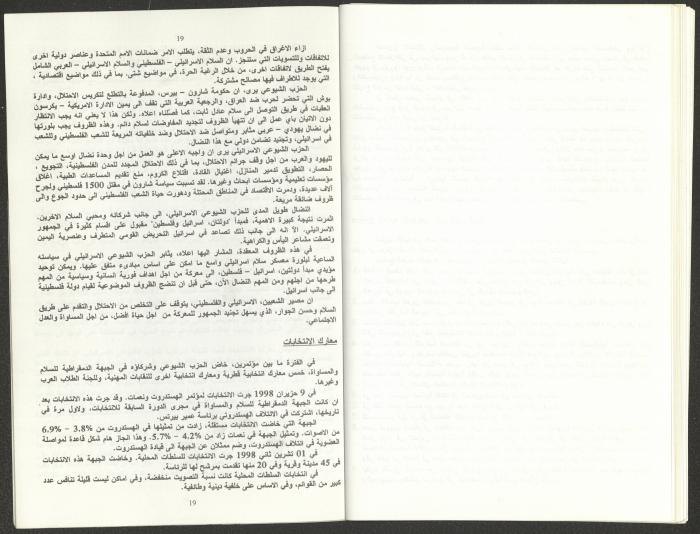 19
ازاء الاغراق في الحروب وعدم الثقة، يتطلب الامر ضمانات الامم المتحدة وعناصر دولية اخرى
للاتفاقات وللتسويات التي ستنجز. ان السلام الاسرائيلي – الفلسطيني والسلام الاسرائيلي – العربي الشامل
يفتح الطريق لاتفاقات اخرى، من خلال الرغبة الحرة، في مواضيع شتى، بما في ذلك مواضيع اقتصادية ،
التي يوجد للاطراف فيها مصالح مشتركة.
الحزب الشيوعي يرى، ان حكومة شارون – بيرس، المدفوعة بالتطلع لتكريس الاحتلال، وادارة
بوش التي تحضر لحرب ضد العراق، والرجعية العربية التي تقف الى يمين الادارة الامريكية – يكرسون
العقبات في طريق التوصل الى سلام عادل ثابت، كما فصلناه اعلاه. ولكن هذا لا يعني انه يجب الانتظار
دون الاتيان باي عمل الى ان تتهيأ الظروف لتجديد المفاوضات لسلام دائم. وهذه الظروف يجب بلورتها
في نضال يهودي – عربي مثابر ومتواصل ضد الاحتلال وضد خلفياته المريعة للشعب الفلسطيني وللشعب
في اسرائيل، وتجنيد تضامن دولي مع هذا النضال.
الحزب الشيوعي الاسرائيلي يرى ان واجبه الاعلى هو العمل من اجل وحدة نضال اوسع ما يمكن
لليهود والعرب من اجل وقف جرائم الاحتلال، بما في ذلك الاحتلال المجدد للمدن الفلسطينية، التجويع ،
الحصار، التطويق تدمير المنازل، اغتيال القادة، اقتلاع الكروم، منع تقديم المساعدات الطبية، اغلاق
مؤسسات تعليمية ومؤسسات ابحاث وغيرها. لقد تسببت سياسة شارون في مقتل 1500 فلسطيني ولجرح
آلاف عديدة، ودمرت الاقتصاد في المناطق المحتلة ودهورت حياة الشعب الفلسطيني الى حدود الجوع والى
ظروف ضائقة مريعة.
النضال طويل المدى للحزب الشيوعي الاسرائيلي، الى جانب شركائه ومحبي السلام الاخرين،
اثمرت نتيجة كبيرة الاهمية. فمبدأ "دولتان، اسرائيل وفلسطين" مقبول على اقسام كثيرة في الجمهور
الاسرائيلي. الا انه الى جانب ذلك تصاعد في اسرائيل التحريض القومي المتطرف وعنصرية اليمين
وتعمقت مشاعر اليأس والكراهية.
في هذه الظروف المعقدة، المشار اليها اعلاه، يثابر الحزب الشيوعي الاسرائيلي في سياسته
الساعية لبلورة معسكر سلام اسرائيلي واسع ما امكن على اساس مبادىء متفق عليها. ويمكن توحيد
مؤيدي مبدأ دولتين، اسرائيل – فلسطين، الى معركة من اجل اهداف فورية انسانية وسياسية من المهم
طرحها من اجلهم ومن المهم النضال الآن، حتى قبل ان تنضج الظروف الموضوعية لقيام دولة فلسطينية
الى جانب اسرائيل.
ان مصير الشعبين، الاسرائيلي والفلسطيني، يتوقف على التخلص من الاحتلال والتقدم على طريق
السلام وحسن الجوار، الذي يسهل تجنيد الجمهور للمعركة من اجل حياة افضل، من اجل المساواة والعدل
الاجتماعي.
معارك الانتخابات
في الفترة ما بين مؤتمرين، خاض الحزب الشيوعي وشركاؤه في الجبهة الدمقراطية للسلام
والمساواة، خمس معارك انتخابية قطرية ومعارك انتخابية اخرى للنقابات المهنية، وللجنة الطلاب العرب
وغيرها.
في 9 حزيران 1998 جرت الانتخابات لمؤتمر الهستدروت ونعمات. وقد جرت هذه الانتخابات بعد
ان كانت الجبهة الدمقراطية للسلام والمساواة في مجرى الدورة السابقة للانتخابات، ولاول مرة في
تاريخها، اشتركت في الائتلاف الهستدروتي برئاسة عمير بيرتس.
الجبهة التي خاضت الانتخابات مستقلة، زادت من تمثيلها في الهستدروت من 3.8% – 6.9%
من الاصوات. وتمثيل الجبهة في نعمات زاد من 4.2% – 5.7%. وهذا انجاز هام شكل قاعدة لمواصلة
العضوية في ائتلاف الهستدروت، وضم ممثلان عن الجبهة الى قيادة الهستدروت.
في 01 تشرين ثاني 1998 جرت الانتخابات للسلطات المحلية. وخاضت الجبهة هذه الانتخابات
في 45 مدينة وقرية وفي 20 منها تقدمت بمرشح لها للرئاسة.
في انتخابات السلطات المحلية كانت نسبة التصويت منخفضة، وفي اماكن ليست قليلة تنافس عدد
كبير من القوائم، وفي الاساس على خلفية دينية وطائفية.
19